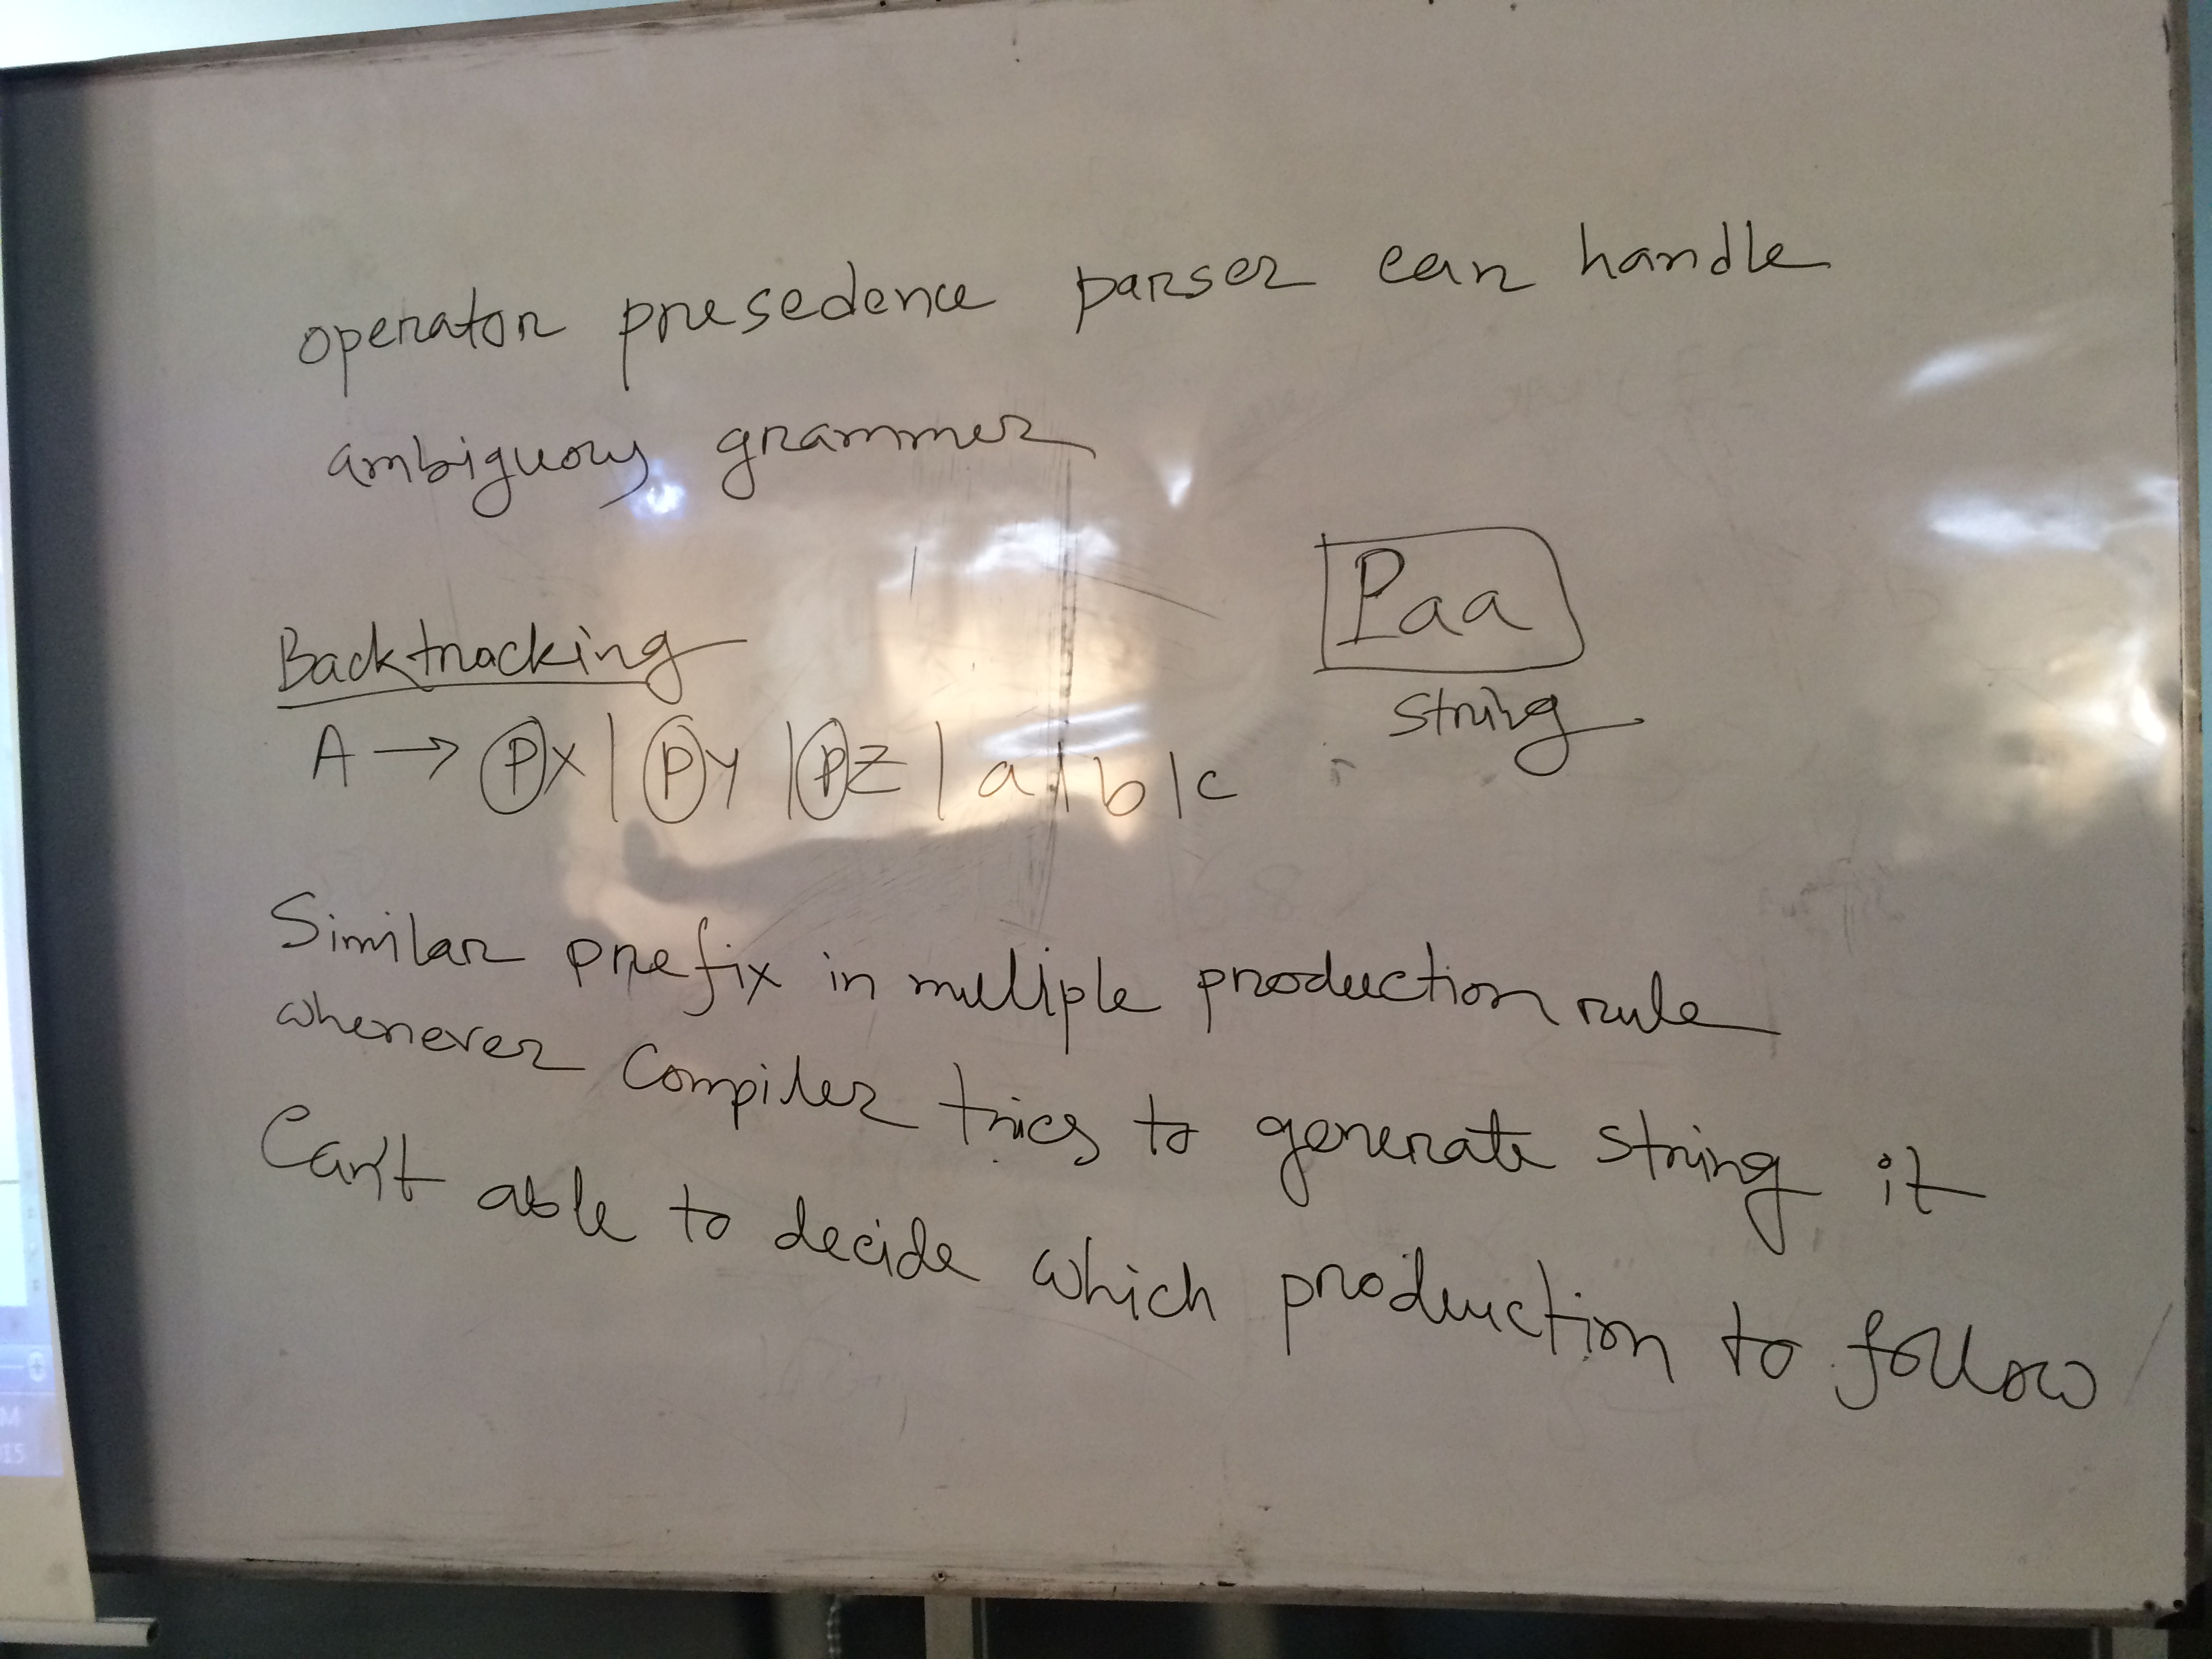 operator presedence parser can handle
ambiguous grammer
Paa
string
Backtracking
A → Px | Py | Pz | a | b | c
Similar prefix in multiple production rule
whenever compiler tries to generate string it
Can't able to decide which production to follow
M
15